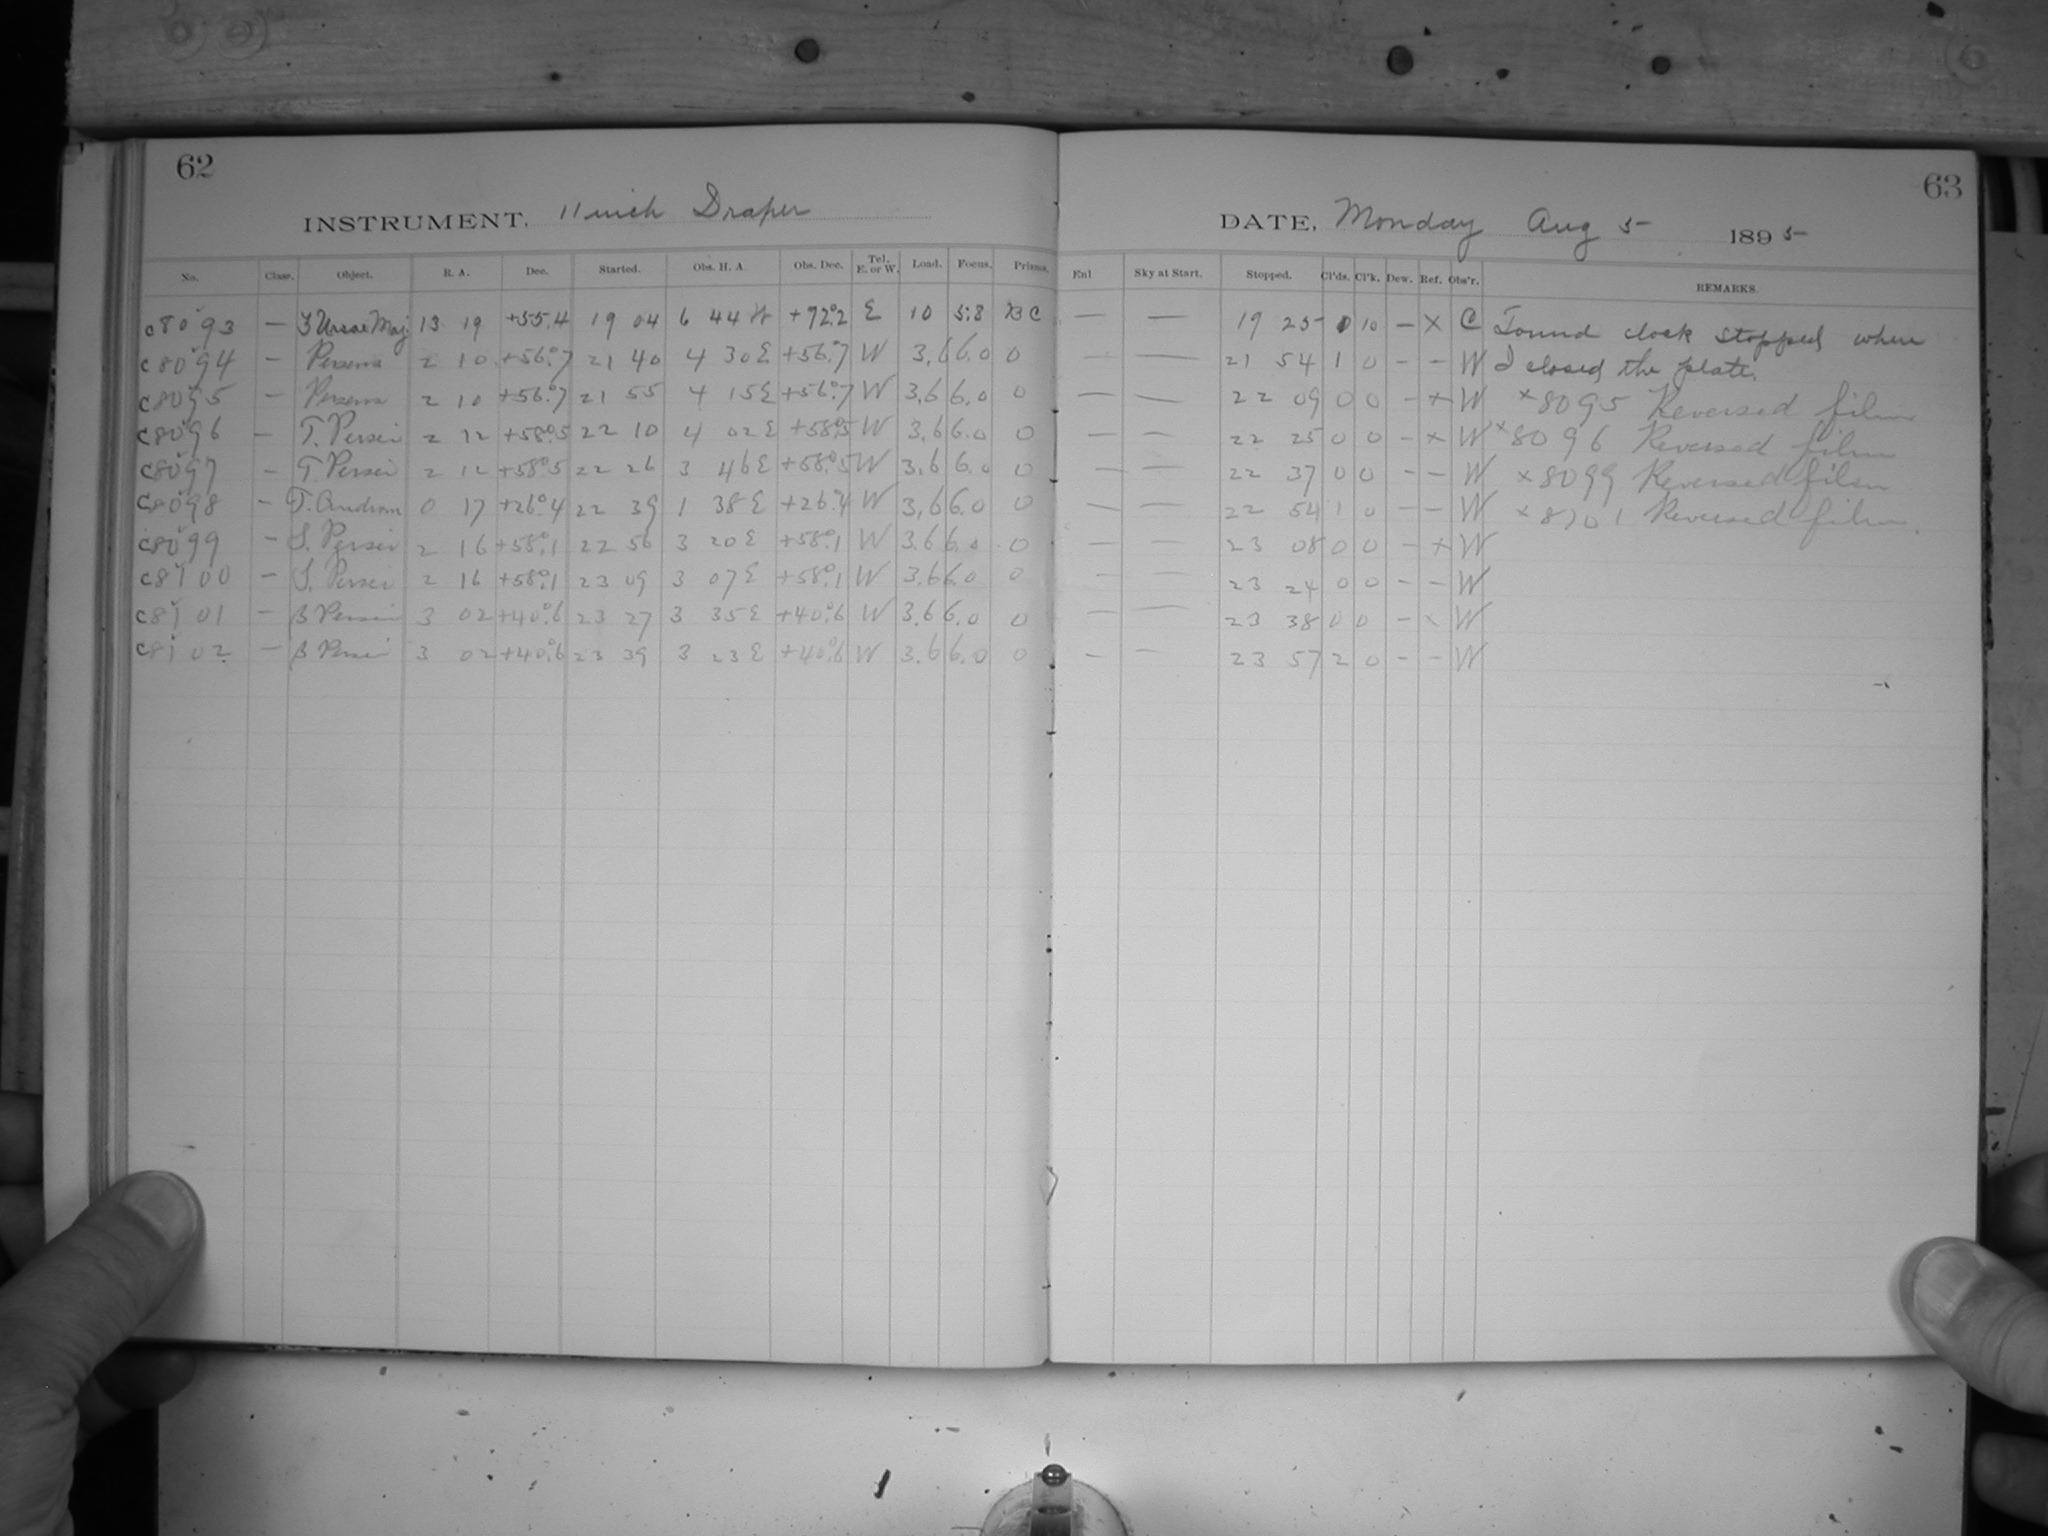 62
INSTRUMENT, 11 inch Draper
No. Class. Object. R. A. Dec. Started. Obs. H. A. Obs. Dec. Tel. E. or W. Load. Focus. Prisms.
c8093 — ζ Ursae Maj 13 19 +55.4 19 04 6 44 W +72°.2 E 10 5.8 BC
c8094 — Perseus 2 10 +56°.7 21 40 4 30 E +56°.7 W 3.6 6.0 0
c8095 — Perseus 2 10 +56°.7 21 55 4 15 E +56°.7 W 3.6 6.0 0
c8096 — T. Persei 2 12 +58°.5 22 10 4 02 E +58°.5 W 3.6 6.0 0
c8097 — T. Persei 2 12 +58°.5 22 26 3 46 E +58°.5 W 3.6 6.0 0
c8098 — T. Androm 0 17 +26°.4 22 39 1 38 E +26°.4 W 3.6 6.0 0
c8099 — S. Persei 2 16 +58°.1 22 56 3 20 E +58°.1 W 3.6 6.0 0
c8100 — S. Persei 2 16 +58°.1 23 09 3 07 E +58°.1 W 3.6 6.0 0
c8101 — B Persei 3 02 +40°.6 23 27 3 35 E +40°.6 W 3.6 6.0 0
c8102 — B Persei 3 02 +40°.6 23 39 3 23 E +40°.6 W 3.6 6.0 0
63
DATE, Monday Aug 5 1895
Enl Sky at Start. Stopped. Cl'ds. Cl'k. Dew. Ref. Obs'r. REMARKS.
— — 19 25 0 10 — X C Found clock stopped when
— — 21 54 1 0 — — W I closed the plate.
— — 22 09 0 0 — + W ×8095 Reversed film
— — 22 25 0 0 — × W ×8096 Reversed film
— — 22 37 0 0 — — W ×8099 Reversed film
— — 22 54 1 0 — — W ×8101 Reversed film.
— — 23 08 0 0 — + W
— — 23 24 0 0 — — W
— — 23 38 0 0 — × W
— — 23 57 2 0 — — W